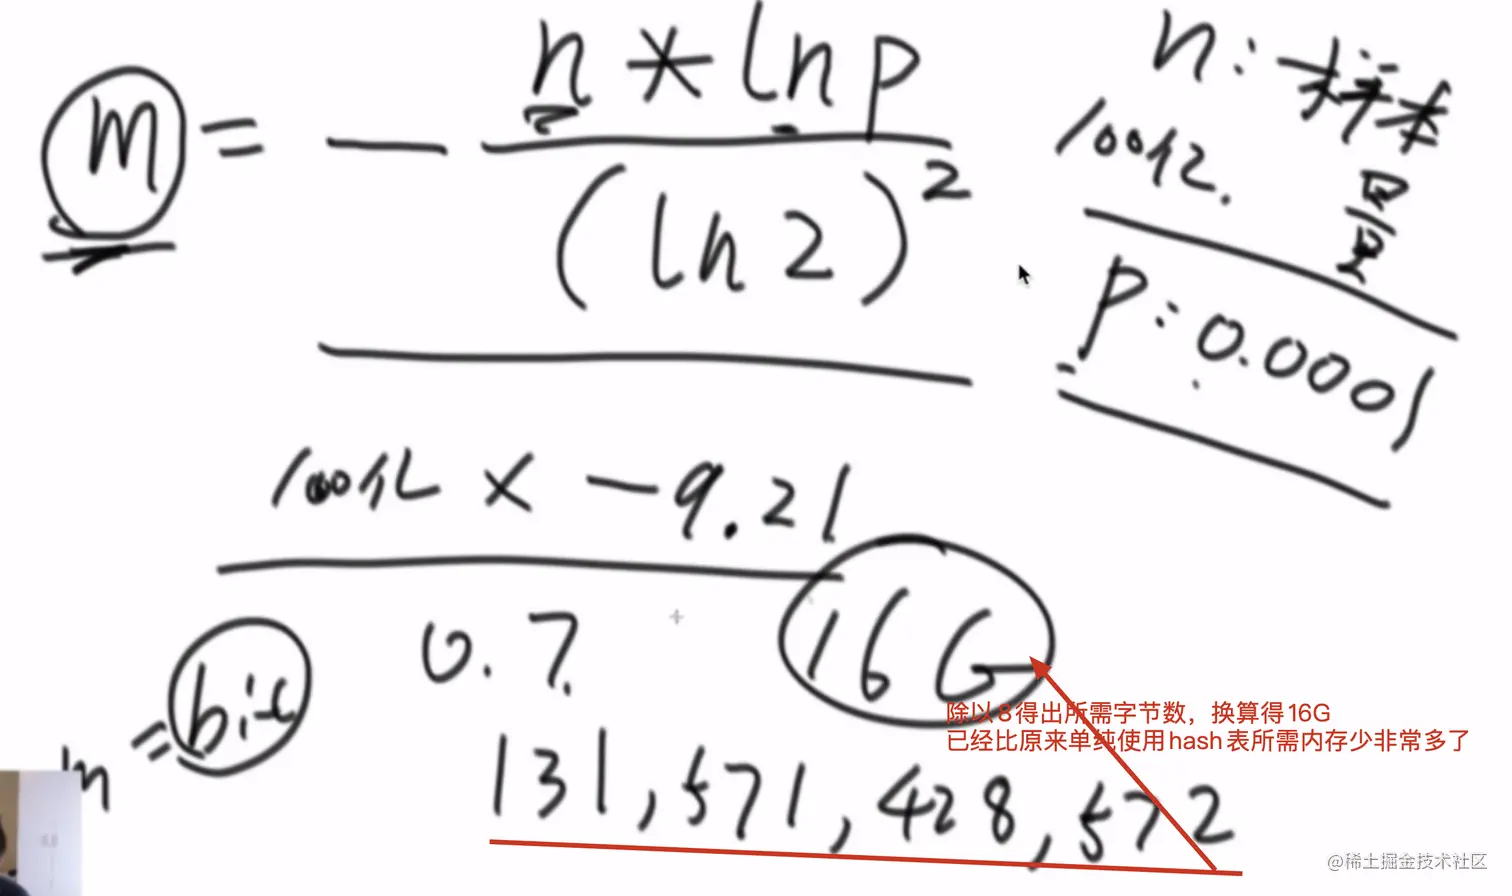 m = - n * ln p
(ln 2)²
n: 样本量
100亿.
p: 0.0001
100亿 × -9.21
0.7.
16G
m = bit
除以8得出所需字节数，换算得16G
已经比原来单纯使用hash表所需内存少非常多了
131,571,428,572
@稀土掘金技术社区